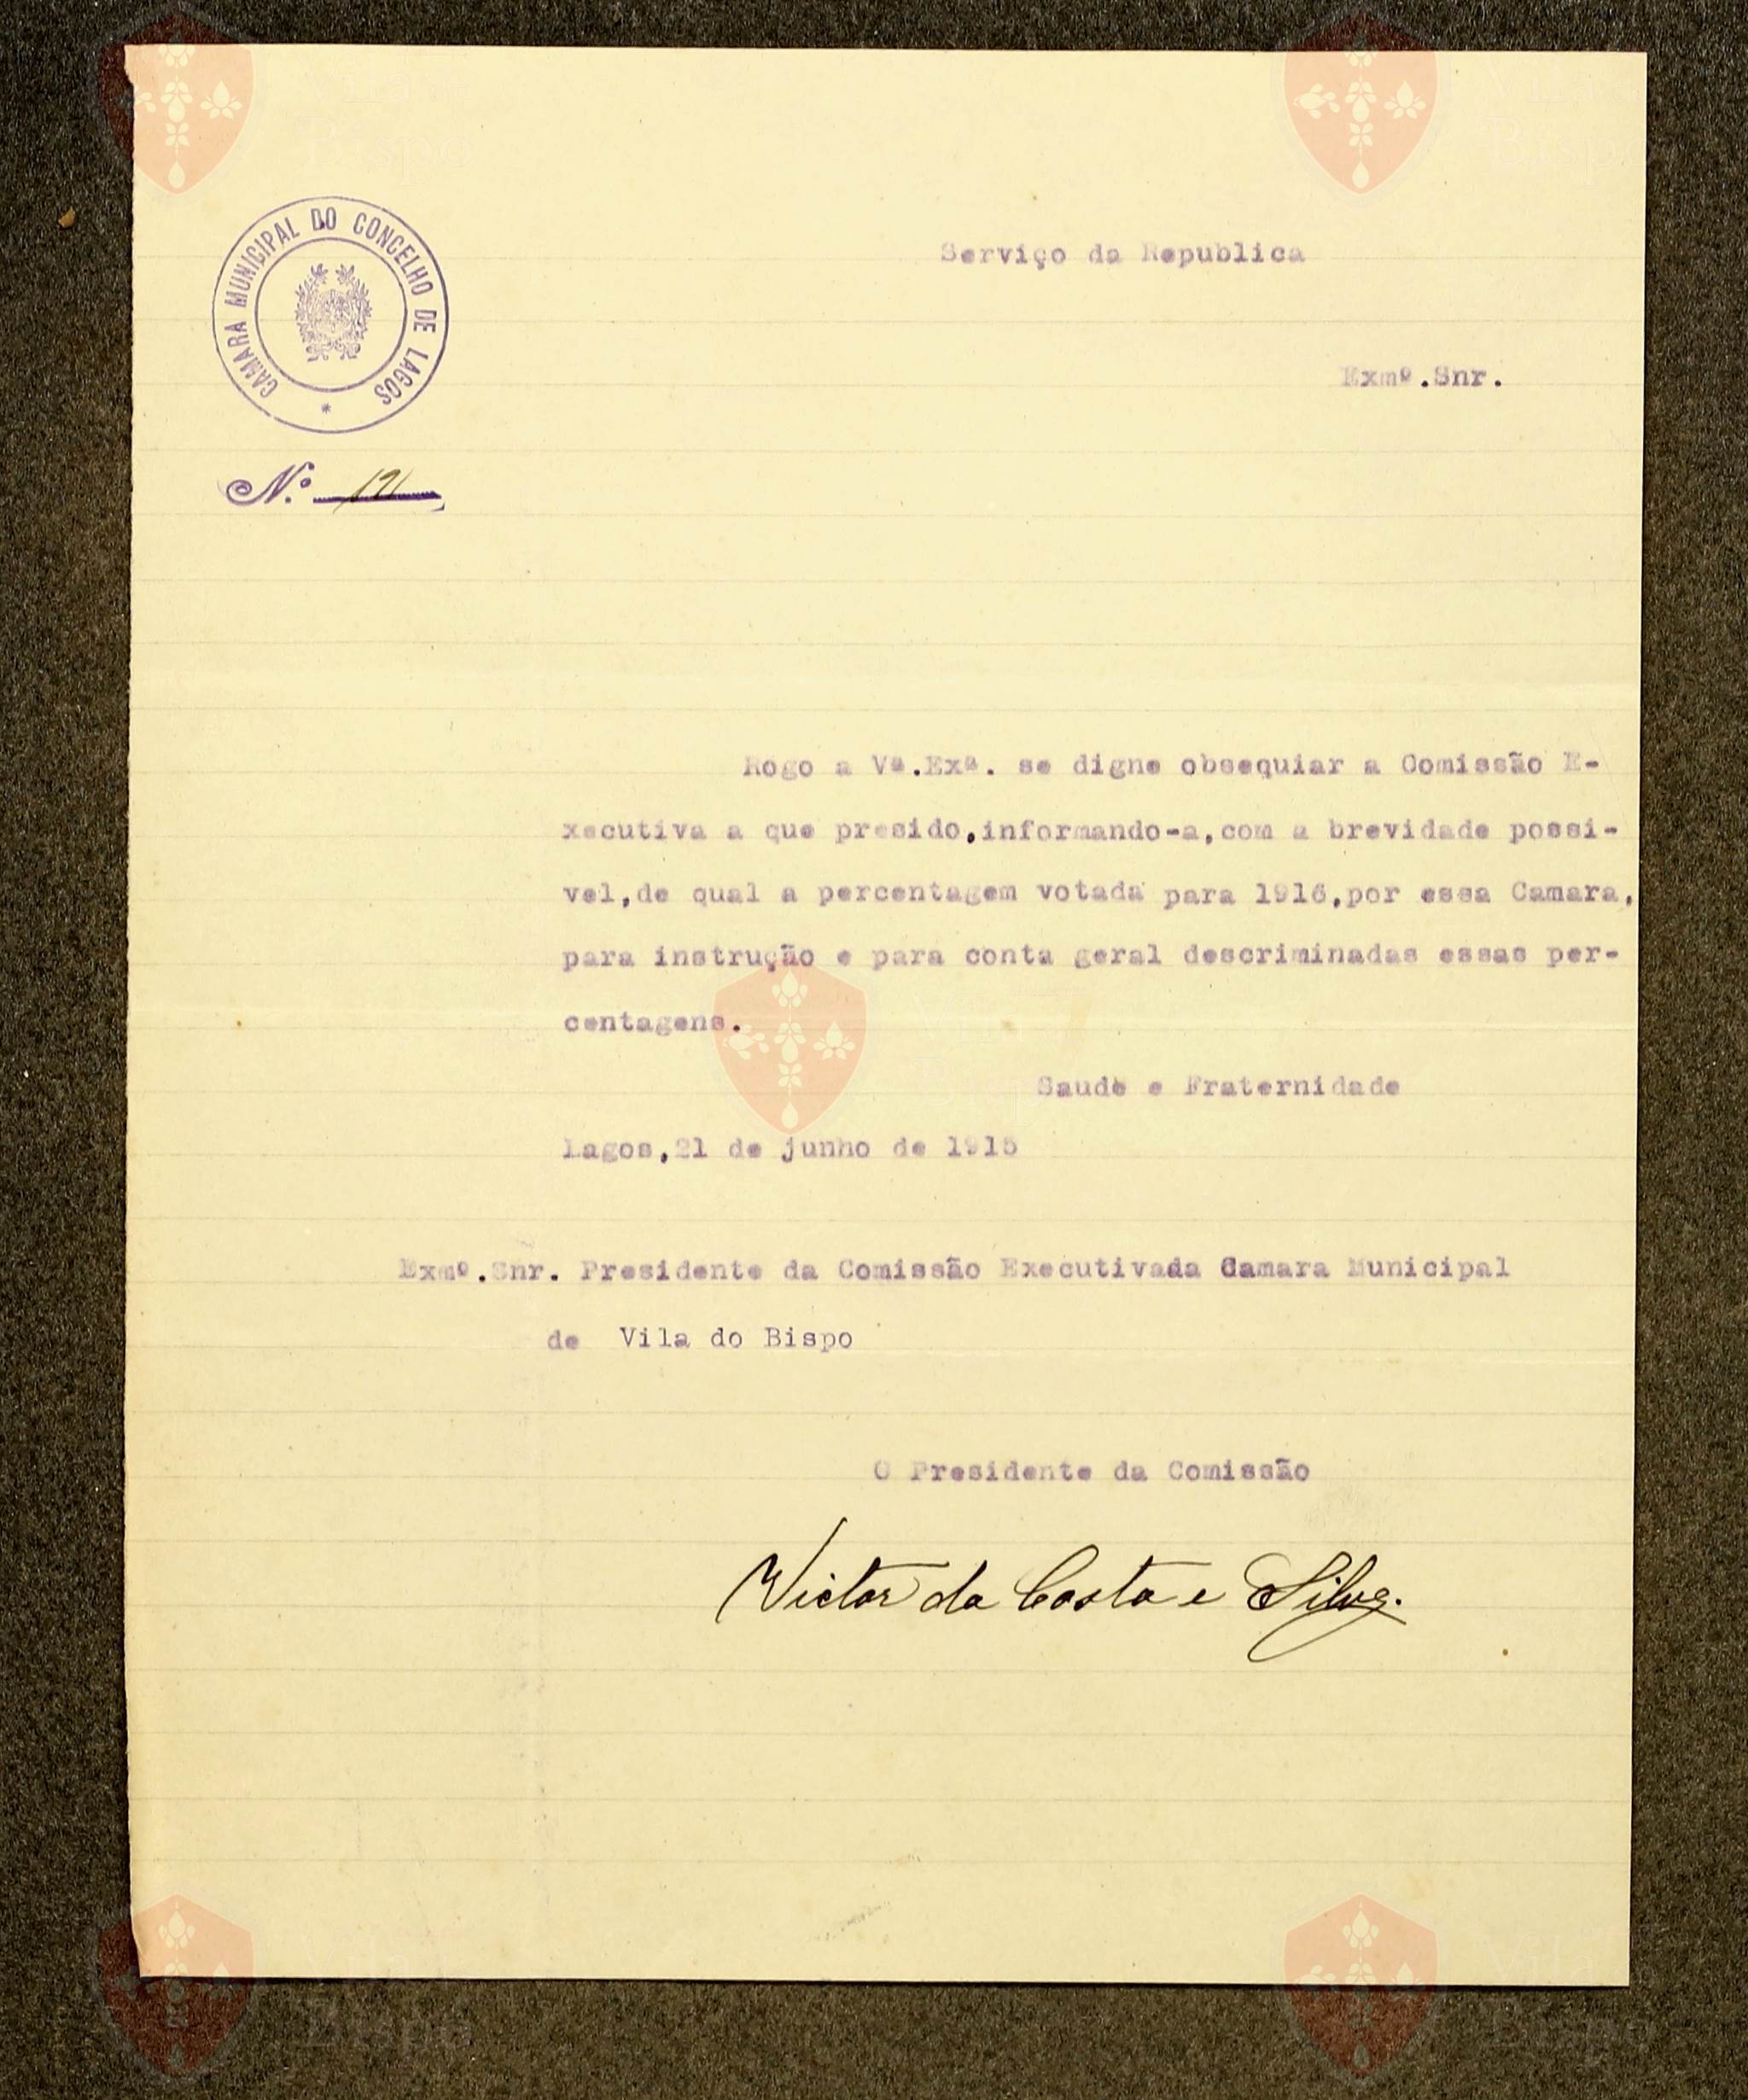 CAMARA MUNICIPAL DO CONCELHO DE LAGOS
*
Serviço da Republica
Exmº.Snr.
N.º 121
Rogo a Vª.Exª. se digne obsequiar a Comissão E-
xecutiva a que presido,informando-a,com a brevidade possi-
vel,de qual a percentagem votada para 1916,por essa Camara,
para instrução e para conta geral descriminadas essas per-
centagens.
Saude e Fraternidade
Lagos,21 de junho de 1915
Exmº.Snr. Presidente da Comissão Executivada Camara Municipal
de Vila do Bispo
O Presidente da Comissão
Victor da Costa e Silva.
Vila do
Bispo
Vila do
Bispo
Vila do
Bispo
Vila do
Bispo
Vila do
Bispo